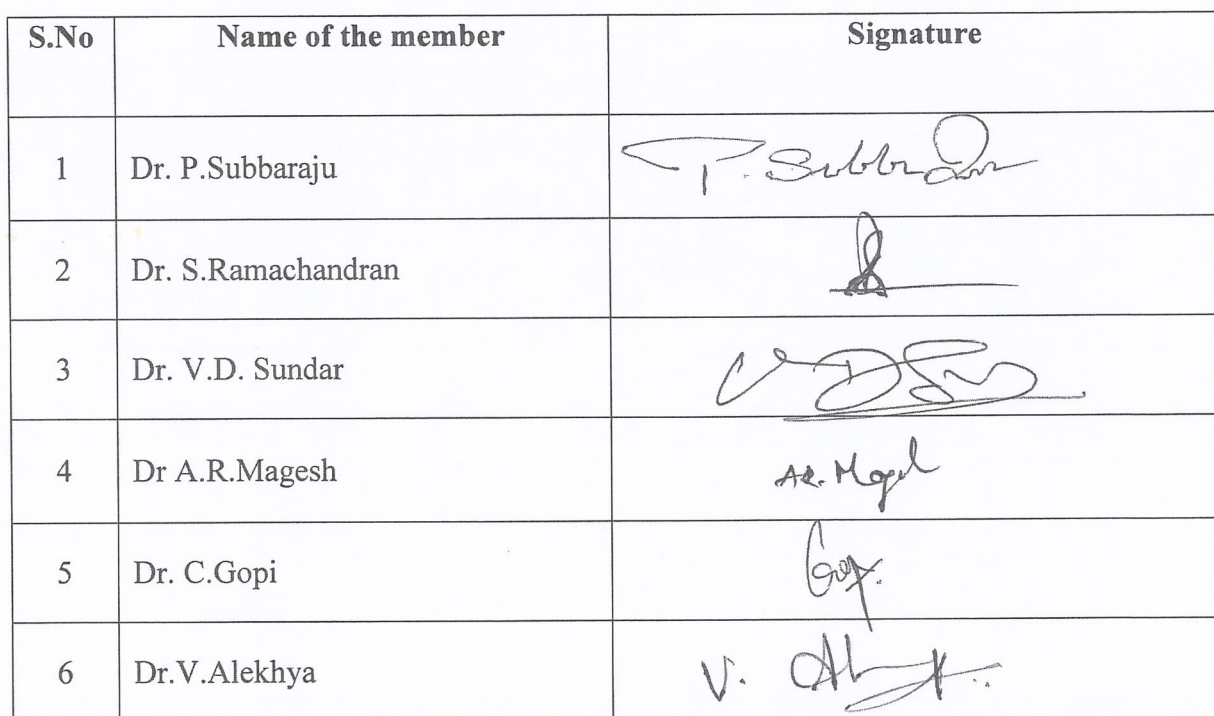 S.No Name of the member Signature
1 Dr. P.Subbaraju P. Subbaraju
2 Dr. S.Ramachandran
3 Dr. V.D. Sundar V D
4 Dr A.R.Magesh AR. Magesh
5 Dr. C.Gopi Gopi.
6 Dr.V.Alekhya V.